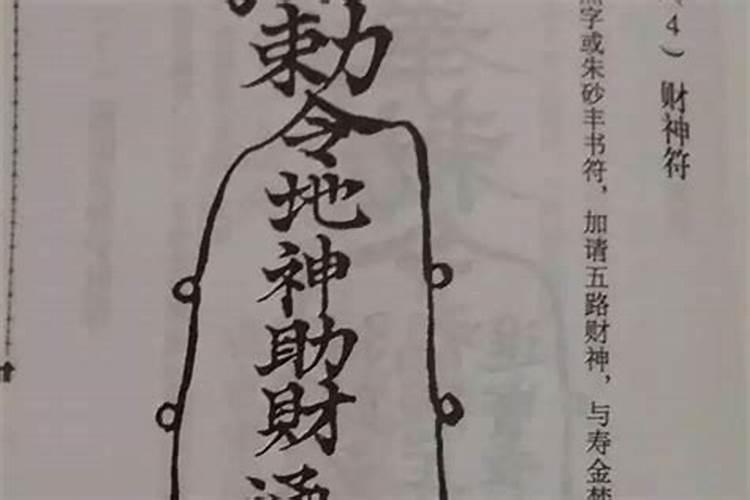 4）财神符
字或朱砂丰书符，加请五路财神，与寿金
敕
令
地
神
助
財
通